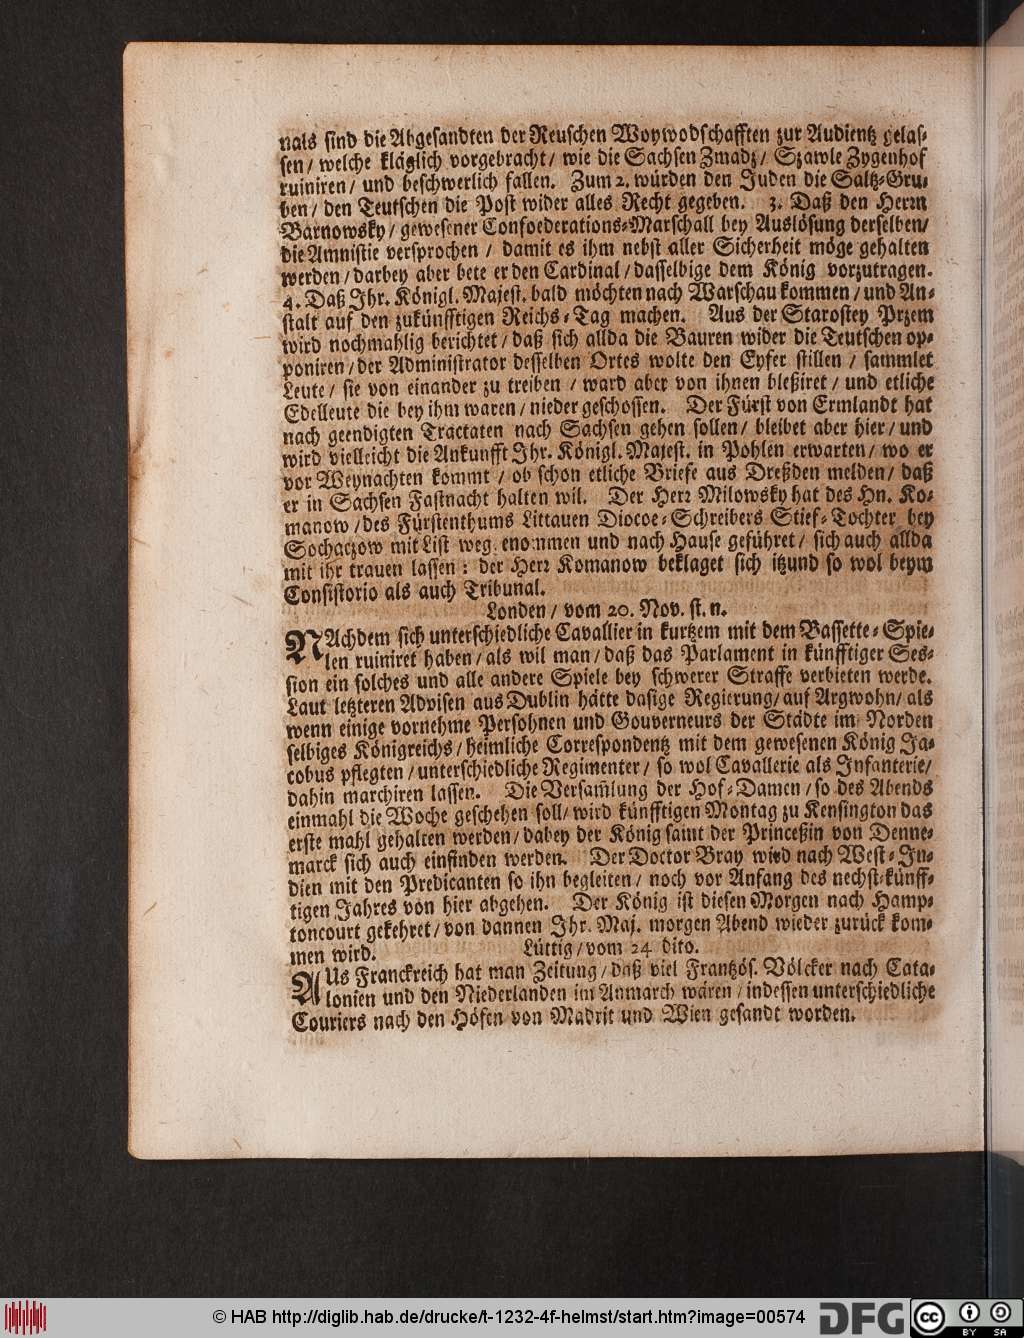 nals sind die Abgesandten der Reuschen Woywodschafften zur Audientz gelas-
sen / welche kläglich vorgebracht / wie die Sachsen Zmadz / Szawle Zygenhof
ruiniren / und beschwerlich fallen. Zum 2. würden den Juden die Saltz-Gru-
ben / den Teutschen die Post wider alles Recht gegeben. 3. Daß den Herrn
Barnowsky / gewesener Confoederations-Marschall bey Auslösung derselben /
die Amnistie versprochen / damit es ihm nebst aller Sicherheit möge gehalten
werden / darbey aber bete er den Cardinal / dasselbige dem König vorzutragen.
4. Daß Ihr. Königl. Majest. bald möchten nach Warschau kommen / und An-
stalt auf den zukünfftigen Reichs-Tag machen. Aus der Starostey Przem
wird nochmahlig berichtet / daß sich allda die Bauren wider die Teutschen op-
poniren / der Administrator desselben Ortes wolte den Eyfer stillen / sammlet
Leute / sie von einander zu treiben / ward aber von ihnen bleßiret / und etliche
Edelleute die bey ihm waren / nieder geschossen. Der Fürst von Ermlandt hat
nach geendigten Tractaten nach Sachsen gehen sollen / bleibet aber hier / und
wird vielleicht die Ankunfft Ihr. Königl. Majest. in Pohlen erwarten / wo er
vor Weynachten kommt / ob schon etliche Briefe aus Dreßden melden / daß
er in Sachsen Fastnacht halten wil. Der Herr Milowsky hat des Hn. Ko-
manow / des Fürstenthums Littauen Diocoe-Schreibers Stief-Tochter bey
Sochaczow mit List weg genommen und nach Hause geführet / sich auch allda
mit ihr trauen lassen: der Herr Komanow beklaget sich itzund so wol beym
Consistorio als auch Tribunal.
Londen / vom 20. Nov. st. n.
NAchdem sich unterschiedliche Cavallier in kurtzem mit dem Bassette-Spie-
len ruiniret haben / als wil man / daß das Parlament in künfftiger Ses-
sion ein solches und alle andere Spiele bey schwerer Straffe verbieten werde.
Laut letzteren Advisen aus Dublin hätte dasige Regierung / auf Argwohn / als
wenn einige vornehme Persohnen und Gouverneurs der Städte im Norden
selbiges Königreichs / heimliche Correspondentz mit dem gewesenen König Ja-
cobus pflegten / unterschiedliche Regimenter / so wol Cavallerie als Infanterie /
dahin marchiren lassen. Die Versam̃lung der Hof-Damen / so des Abends
einmahl die Woche geschehen soll / wird künfftigen Montag zu Kensington das
erste mahl gehalten werden / dabey der König samt der Princeßin von Denne-
marck sich auch einfinden werden. Der Doctor Bray wird nach West-In-
dien mit den Predicanten so ihn begleiten / noch vor Anfang des nechst-künff-
tigen Jahres von hier abgehen. Der König ist diesen Morgen nach Hamp-
toncourt gekehret / von dannen Ihr. Maj. morgen Abend wieder zurück kom-
men wird. Lüttig / vom 24 dito.
AUs Franckreich hat man Zeitung / daß viel Frantzös. Völcker nach Cata-
lonien und den Niederlanden im Anmarch wären / indessen unterschiedliche
Couriers nach den Höfen von Madrit und Wien gesandt worden.
© HAB http://diglib.hab.de/drucke/t-1232-4f-helmst/start.htm?image=00574 DFG cc BY SA